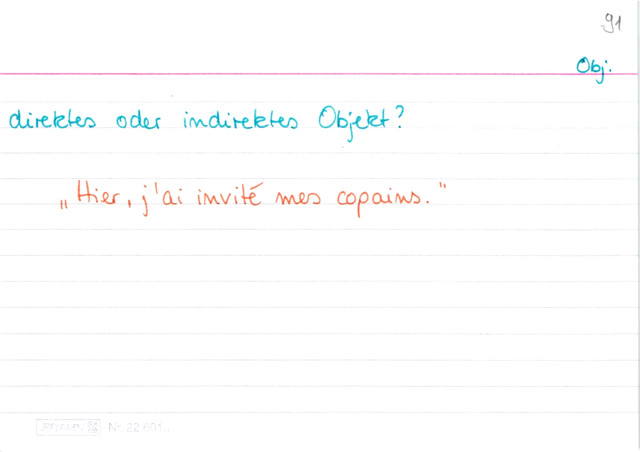 91
Obj.
direktes oder indirektes Objekt?
„Hier, j'ai invité mes copains."
Nr. 22 601